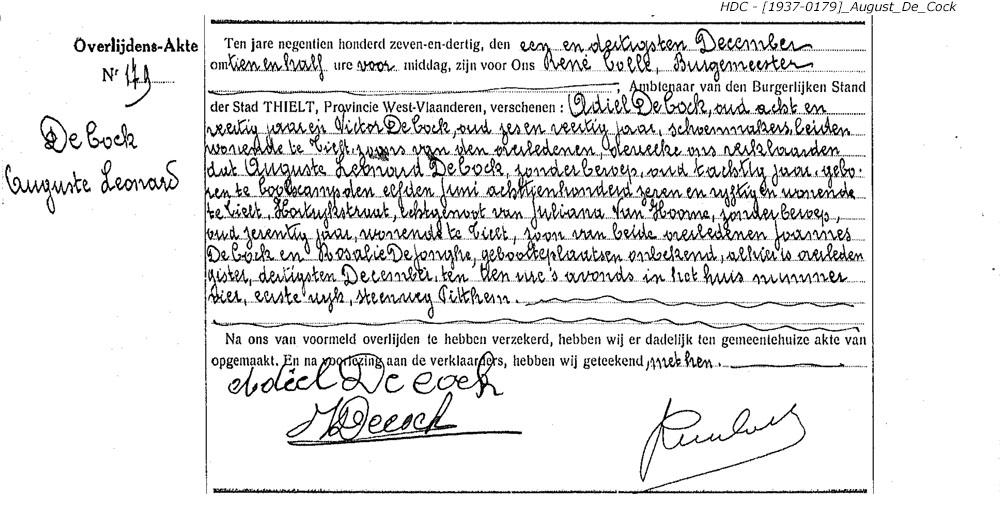 HDC - [1937-0179]_August_De_Cock
Overlijdens-Akte
Nr 179
De Cock
Auguste Leonard
Ten jare negentien honderd zeven-en-dertig, den een en dertigsten December
om tien en half ure voor middag, zijn voor Ons René Colle, Burgemeester
Ambtenaar van den Burgerlijken Stand
der Stad THIELT, Provincie West-Vlaanderen, verschenen: Adiel De Cock, oud acht en
veertig jaar en Victor De Cock, oud zes en veertig jaar, schoenmakers, beiden
wonende te Tielt, zoons van den overledenen, dewelke ons verklaarden
dat Auguste Leonard De Cock, zonder beroep, oud tachtig jaar, gebo-
ren te Coolscamp den elfden Juni achttienhonderd zeven en vijftig en wonende
te Tielt, Kortrijkstraat, echtgenoot van Juliana Van Hoorne, zonder beroep,
oud zeventig jaar, wonende te Tielt, zoon van beide overledenen Joannes
De Cock en Rosalie De Jonghe, geboorteplaatsen onbekend, alhier is overleden
gister, dertigsten December, ten tien ure 's avonds in het huis nummer
vier, eerste wijk, steenweg Pitthem.
Na ons van voormeld overlijden te hebben verzekerd, hebben wij er dadelijk ten gemeentehuize akte van
opgemaakt. En na voorlezing aan de verklaarders, hebben wij geteekend, met hen.
Adiel De Cock
Decock